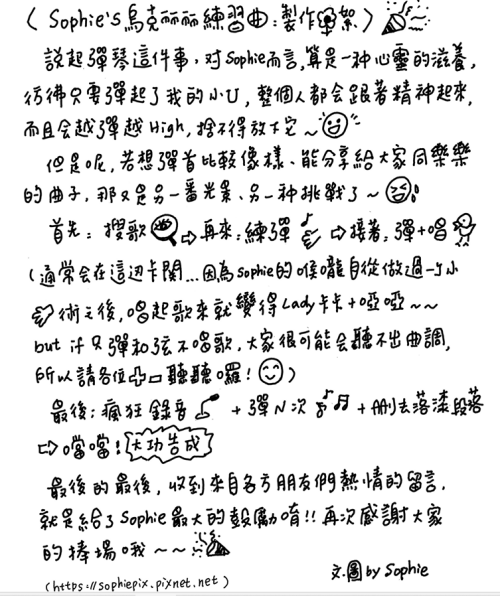 (Sophie's 烏克丽丽練習曲:製作花絮)
說起彈琴這件事,对Sophie而言,算是一种心靈的滋養,
彷彿只要彈起了我的小U,整個人都会跟著精神起來,
而且会越彈越High,捨不得放下它~
但是呢,若想彈首比較像樣、能分享給大家同樂樂
的曲子,那又是另一番光景、另一种挑戰了~
首先:搜歌⇨再來:練彈⇨接著:彈+唱
(通常会在這边卡關...因為Sophie的喉嚨自從做過一次小
術之後,唱起歌來就變得Lady卡卡+啞啞~~
but if 只彈和弦不唱歌,大家很可能会聽不出曲調,
所以請各位聽聽囉!)
最後:瘋狂錄音+彈N次+刪去落漆段落
⇨噹噹!大功告成
最後的最後,收到來自各方朋友們熱情的留言,
就是給了Sophie最大的鼓勵唷!!再次感謝大家
的捧場哦~~
文.圖 by Sophie
(https://sophiepix.pixnet.net)